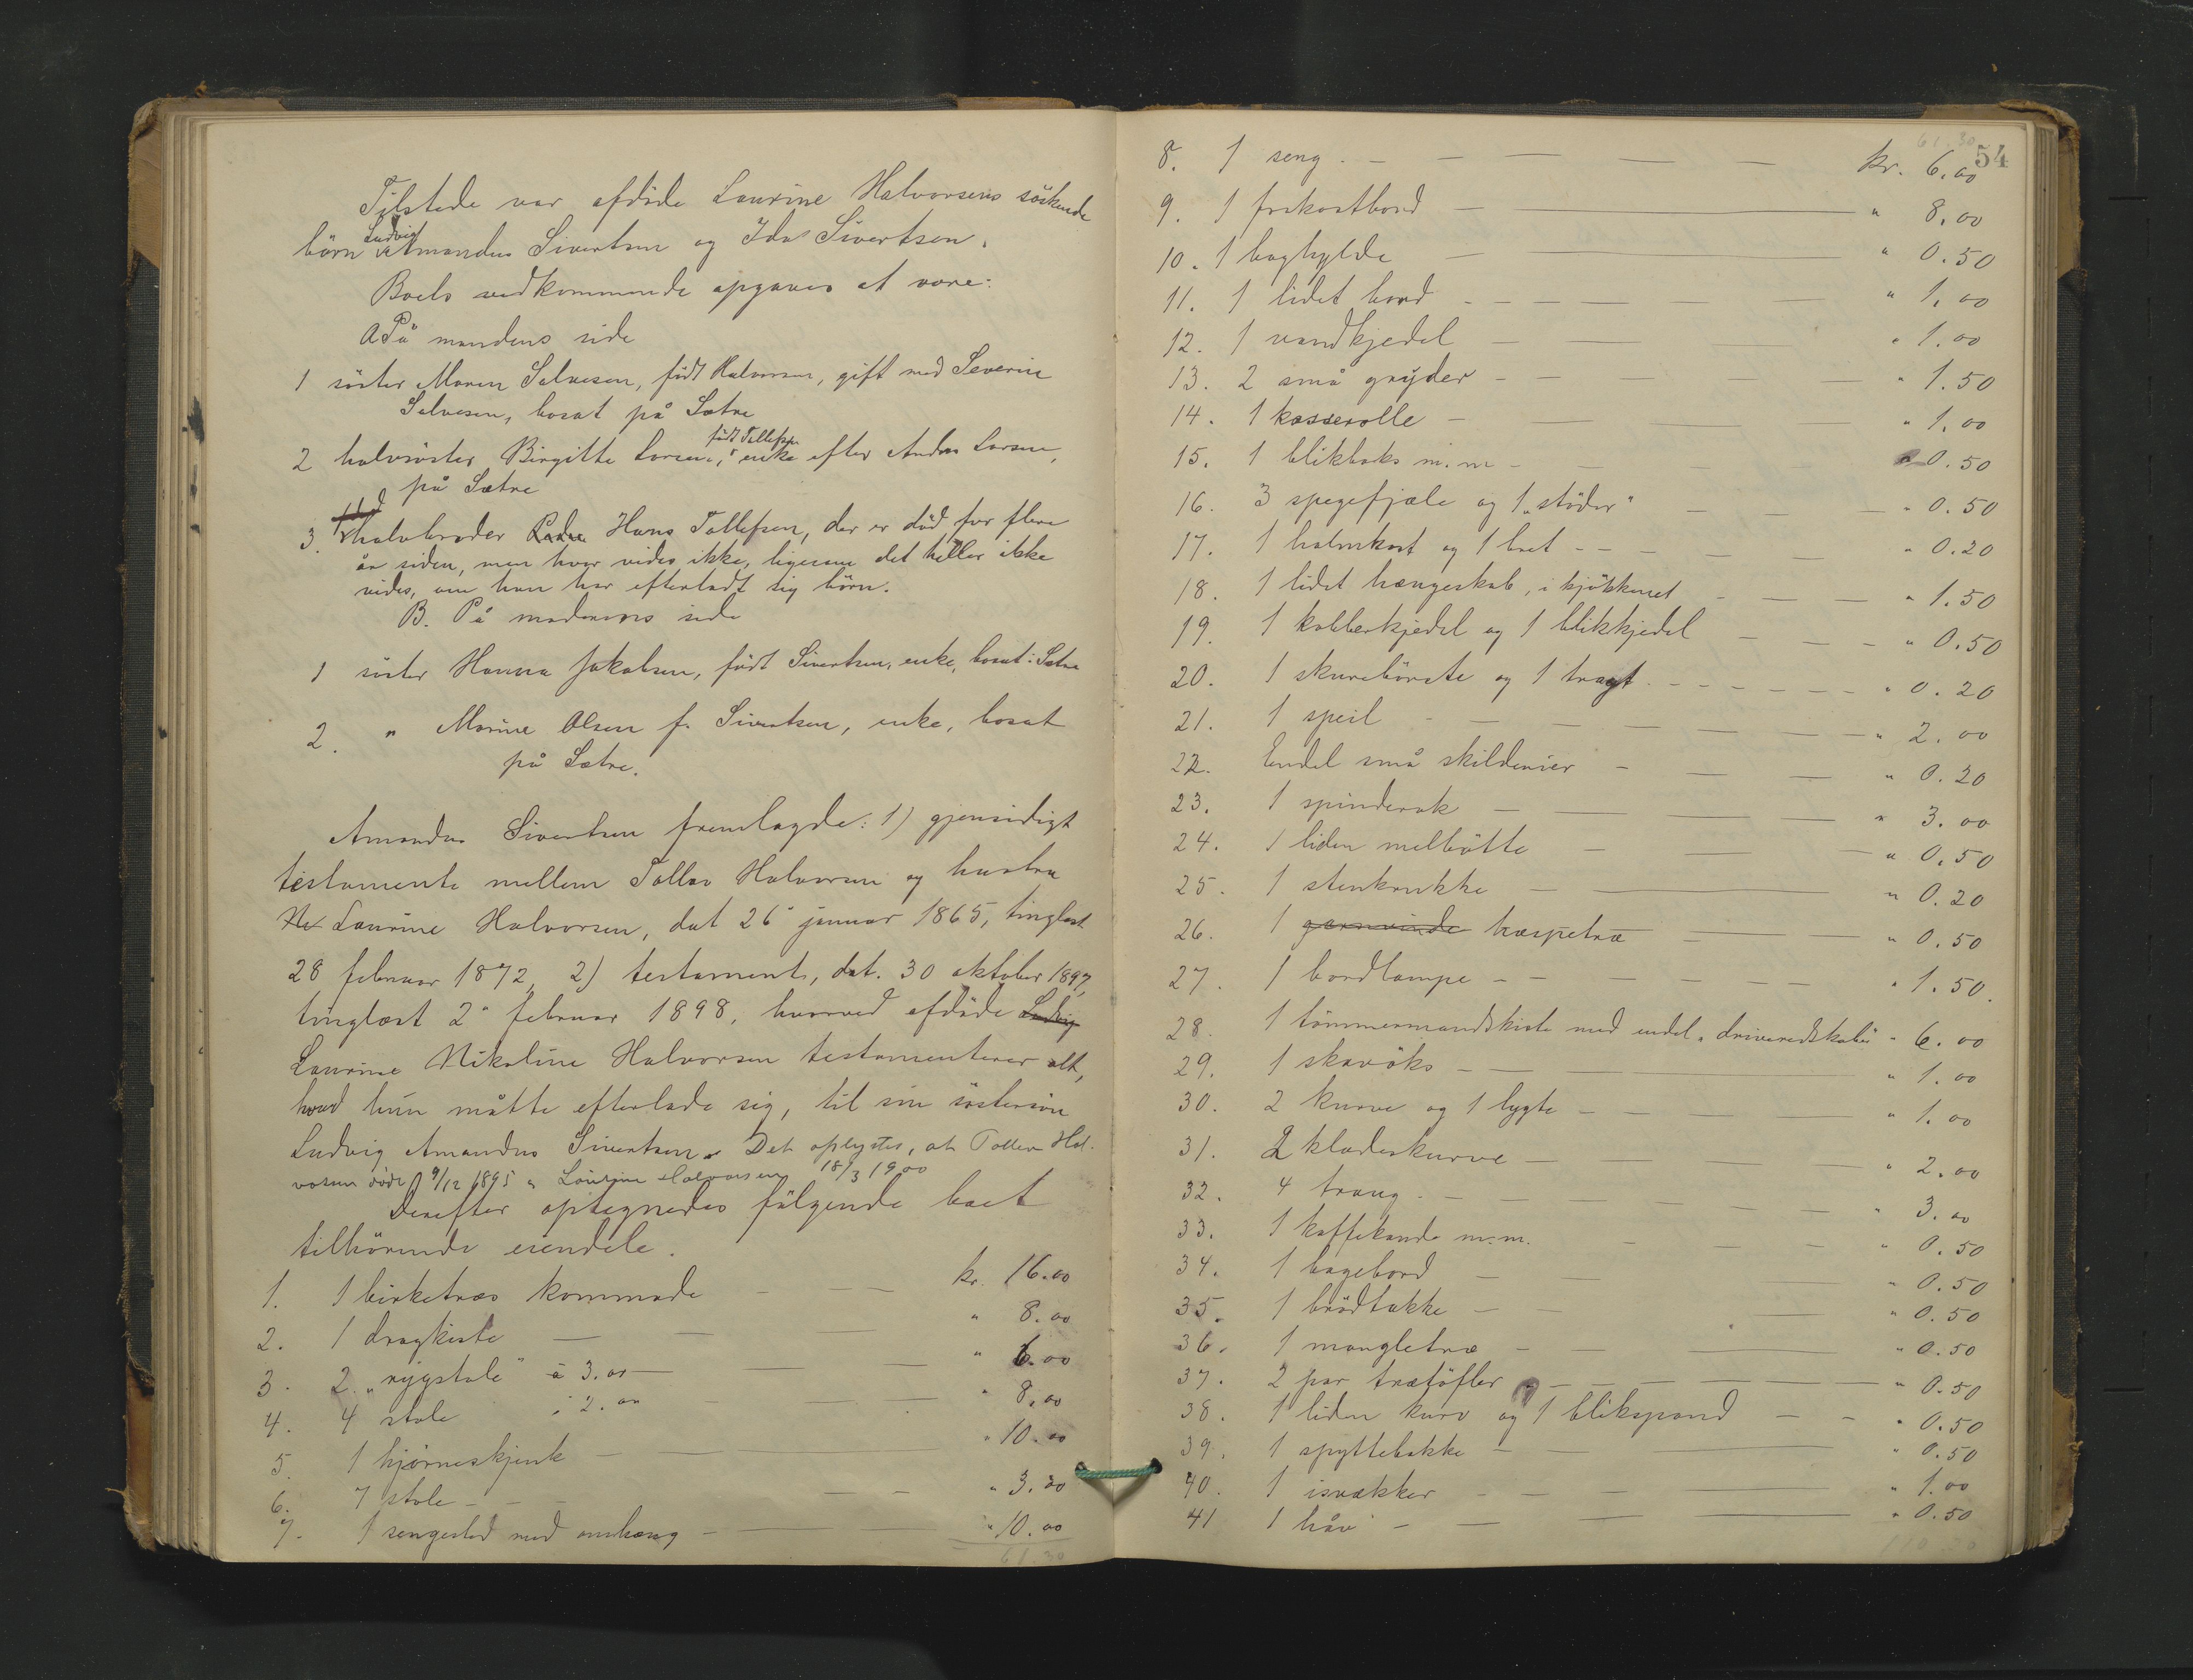 Tilstede var afdöde Laurine Halvorsens söskende
börn Ludvig Amandus Sivertsen og Ida Sivertsen.
Boets vedkommende opgaves at være:
A På mandens side
1 söster Maren Salvesen, födt Halvorsen, gift med Severin
Salvesen, bosat på Sætre
2 halvsöster Birgitte Larsen, födt Tollefsen enke efter Anders Larsen,
på Sætre
3. halvbroder Hans Tollefsen, der er död for flere
år siden, men hvor vides ikke, ligesom det heller ikke
vides, om han har efterladt sig börn.
B. På madamens side
1 söster Hanna Jakobsen, födt Sivertsen, enke, bosat i Sætre
2. " Marine Olsen f. Sivertsen, enke, bosat
på Sætre.
Amandus Sivertsen fremlagde: 1) gjensidigt
testamente mellem Tollev Halvorsen og hustru
Laurine Halvorsen, dat 26 januar 1865, tinglæst
28 februar 1872, 2) testamente, dat. 30 oktober 1897,
tinglæst 2 februar 1898, hvorved afdöde Ludvig
Laurine Nikoline Halvorsen testamenterer alt,
hvad hun måtte efterlade sig, til sin söstersön
Ludvig Amandus Sivertsen. Det oplystes, at Tollev Hal-
vorsen döde 9/12 1895 " Laurine Halvorsen 18/3 1900
Derefter optegnedes fölgende boet
tilhörende eiendele.
1. 1 birketræs kommode — — kr. 16.00
2. 1 dragkiste — — " 8.00
3. 2 "rygstole" á 3.00 — — " 6.00
4. 4 stole á 2.00 — — " 8.00
5. 1 hjörneskjenk — — " 10.00
6. 7 stole — — " 3.30
7. 1 sengested med omhæng — " 10.00
61.30
61.30
54
8. 1 seng — — — kr. 6.00
9. 1 frokostbord — — " 8.00
10. 1 boghylde — — " 0.50
11. 1 lidet bord — — " 1.00
12. 1 vandkjedel — — " 1.00
13. 2 små gryder — — " 1.50
14. 1 kasserolle — — " 1.00
15. 1 blikboks m.m — — " 0.50
16. 3 spegefjæle og 1 "stöder" — — " 0.50
17. 1 halmkost og 1 bret — — " 0.20
18. 1 lidet hængeskab, i kjökkenet — — " 1.50
19. 1 kobberkjedel og 1 blikkjedel — — " 0.50
20. 1 skurebörste og 1 tragt — — " 0.20
21. 1 speil — — " 2.00
22. Endel små skilderier — — " 0.20
23. 1 spinderok — — " 3.00
24. 1 liden melbötte — — " 0.50
25. 1 stenkrukke — — " 0.20
26. 1 garnvinde hæspetræ — — " 0.50
27. 1 bordlampe — — " 1.50
28. 1 tömmermandskiste med endel " driveredskaber " 6.00
29. 1 skavöks — — " 1.00
30. 2 kurve og 1 lygte — — " 1.00
31. 2 klædeskurve — — " 2.00
32. 4 traug — — " 3.00
33. 1 kaffekande m.m. — — " 0.50
34. 1 bagebord — — " 0.50
35. 1 brödtakke — — " 0.50
36. 1 mangletræ — — " 0.50
37. 2 par trætöfler — — " 0.50
38. 1 liden kurv og 1 blikspand — — " 0.50
39. 1 spyttebakke — — " 0.50
40. 1 isvækker — — " 1.00
41 1 håv — — " 0.50